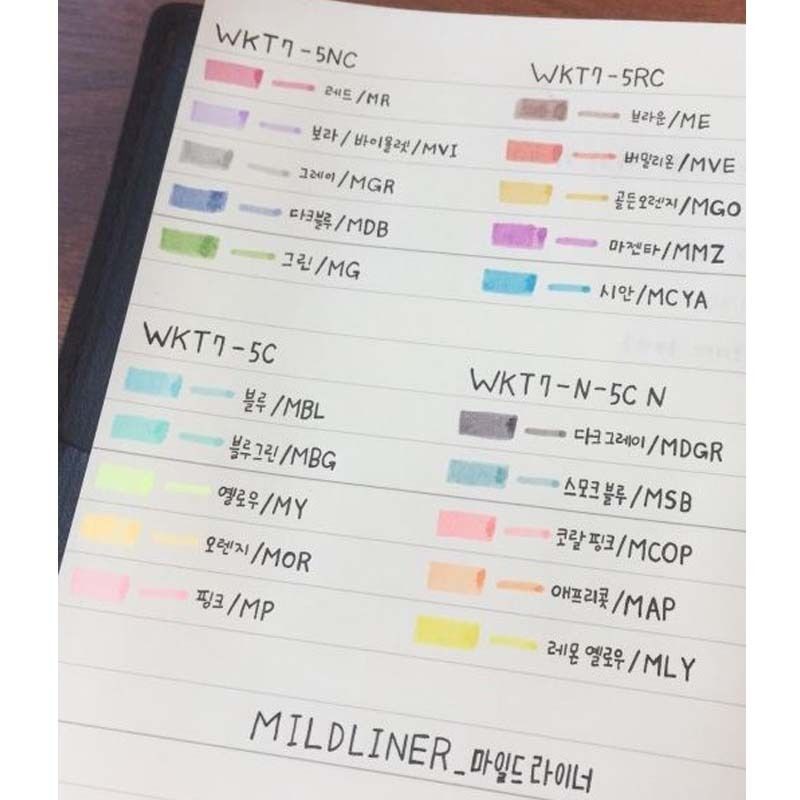 WKT7-5NC
레드/MR
보라/바이올렛/MVI
그레이/MGR
다크블루/MDB
그린/MG
WKT7-5RC
브라운/ME
버밀리온/MVE
골든오렌지/MGO
마젠타/MMZ
시안/MCYA
WKT7-5C
블루/MBL
블루그린/MBG
옐로우/MY
오렌지/MOR
핑크/MP
WKT7-N-5C N
다크그레이/MDGR
스모크블루/MSB
코랄핑크/MCOP
애프리콧/MAP
레몬 옐로우/MLY
MILDLINER_마일드라이너